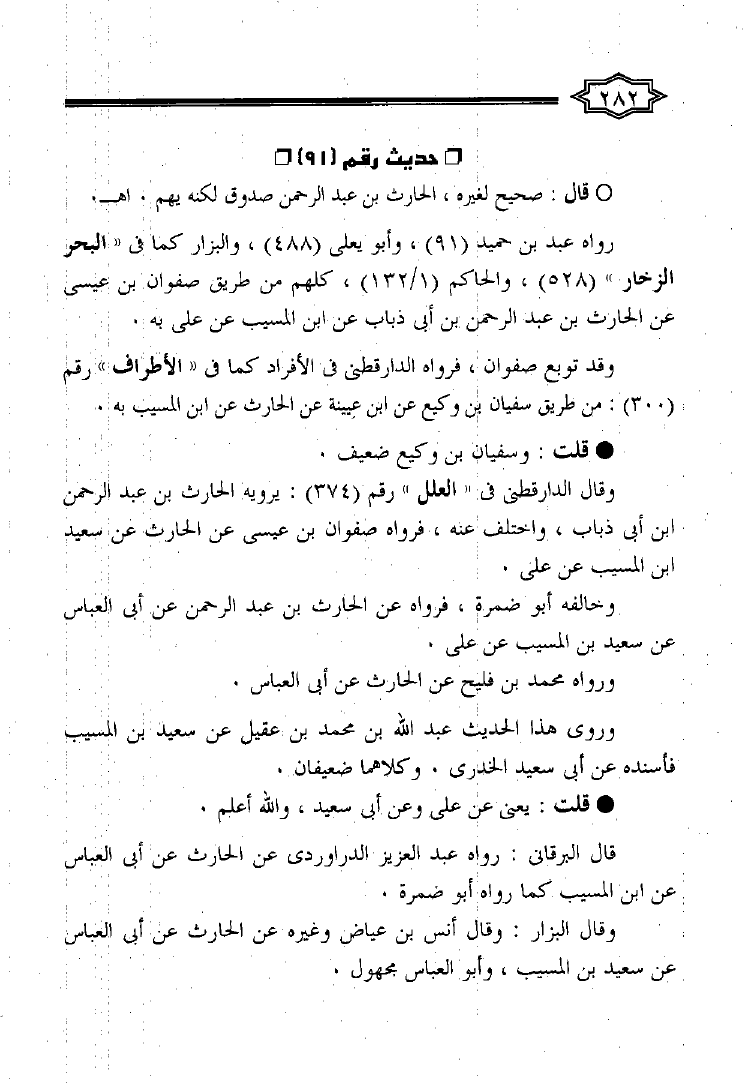 ٢٨٢
❒ حديث رقم (٩١) ❒
○ قال : صحيح لغيره ، الحارث بن عبد الرحمن صدوق لكنه يهم . اهـ .
رواه عبد بن حميد (٩١) ، وأبو يعلى (٤٨٨) ، والبزار كما فى « البحر
الزخار » (٥٢٨) ، والحاكم (١٣٢/١) ، كلهم من طريق صفوان بن عيسى
عن الحارث بن عبد الرحمن بن أبى ذباب عن ابن المسيب عن على به .
وقد توبع صفوان ، فرواه الدارقطنى فى الأفراد كما فى « الأطراف » رقم
(٣٠٠) : من طريق سفيان بن وكيع عن ابن عيينة عن الحارث عن ابن المسيب به .
● قلت : وسفيان بن وكيع ضعيف .
وقال الدارقطنى فى « العلل » رقم (٣٧٤) : يرويه الحارث بن عبد الرحمن
ابن أبى ذباب ، واختلف عنه ، فرواه صفوان بن عيسى عن الحارث عن سعيد
ابن المسيب عن على .
وخالفه أبو ضمرة ، فرواه عن الحارث بن عبد الرحمن عن أبى العباس
عن سعيد بن المسيب عن على .
ورواه محمد بن فليح عن الحارث عن أبى العباس .
وروى هذا الحديث عبد الله بن محمد بن عقيل عن سعيد بن المسيب
فأسنده عن أبى سعيد الخدرى . وكلاهما ضعيفان .
● قلت : يعنى عن على وعن أبى سعيد ، والله أعلم .
قال البرقانى : رواه عبد العزيز الدراوردى عن الحارث عن أبى العباس
عن ابن المسيب كما رواه أبو ضمرة .
وقال البزار : وقال أنس بن عياض وغيره عن الحارث عن أبى العباس
عن سعيد بن المسيب ، وأبو العباس مجهول .